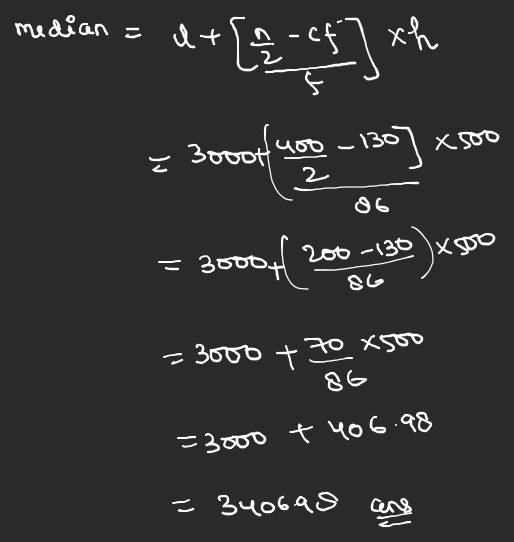 median = l + [n/2 - cf / f] × h
= 3000 + (400/2 - 130 / 86] × 500
= 3000 + (200 - 130 / 86) × 500
= 3000 + 70/86 × 500
= 3000 + 406.98
= 3406.98 ans